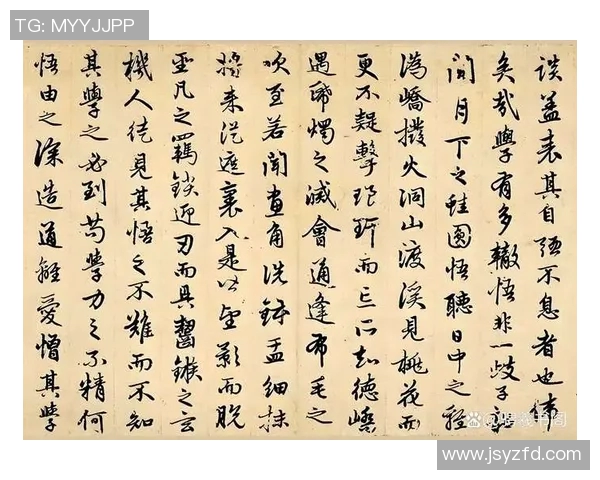 TG: MYYJJPP
談蓋表其自强不息者也
矣哉學有多轍悟非一歧子韶
聞月下之蛙圓悟聽日中之雞
溈嶠撥火洞山渡溪見桃花而
更不疑擊琅玕而亡所知德嶠
遇紙燭之滅會通逢布毛之
吹至若聞畫角洗鉢盂細抹
將来從遮裏入是以望影而脱
聖凡之羈鎖迎刃而具齧鏃之
機人徒見其悟之不難而不知
其學之必到苟學力之不精何
悟由之深造道離愛憎其學
www.jsyzfd.com